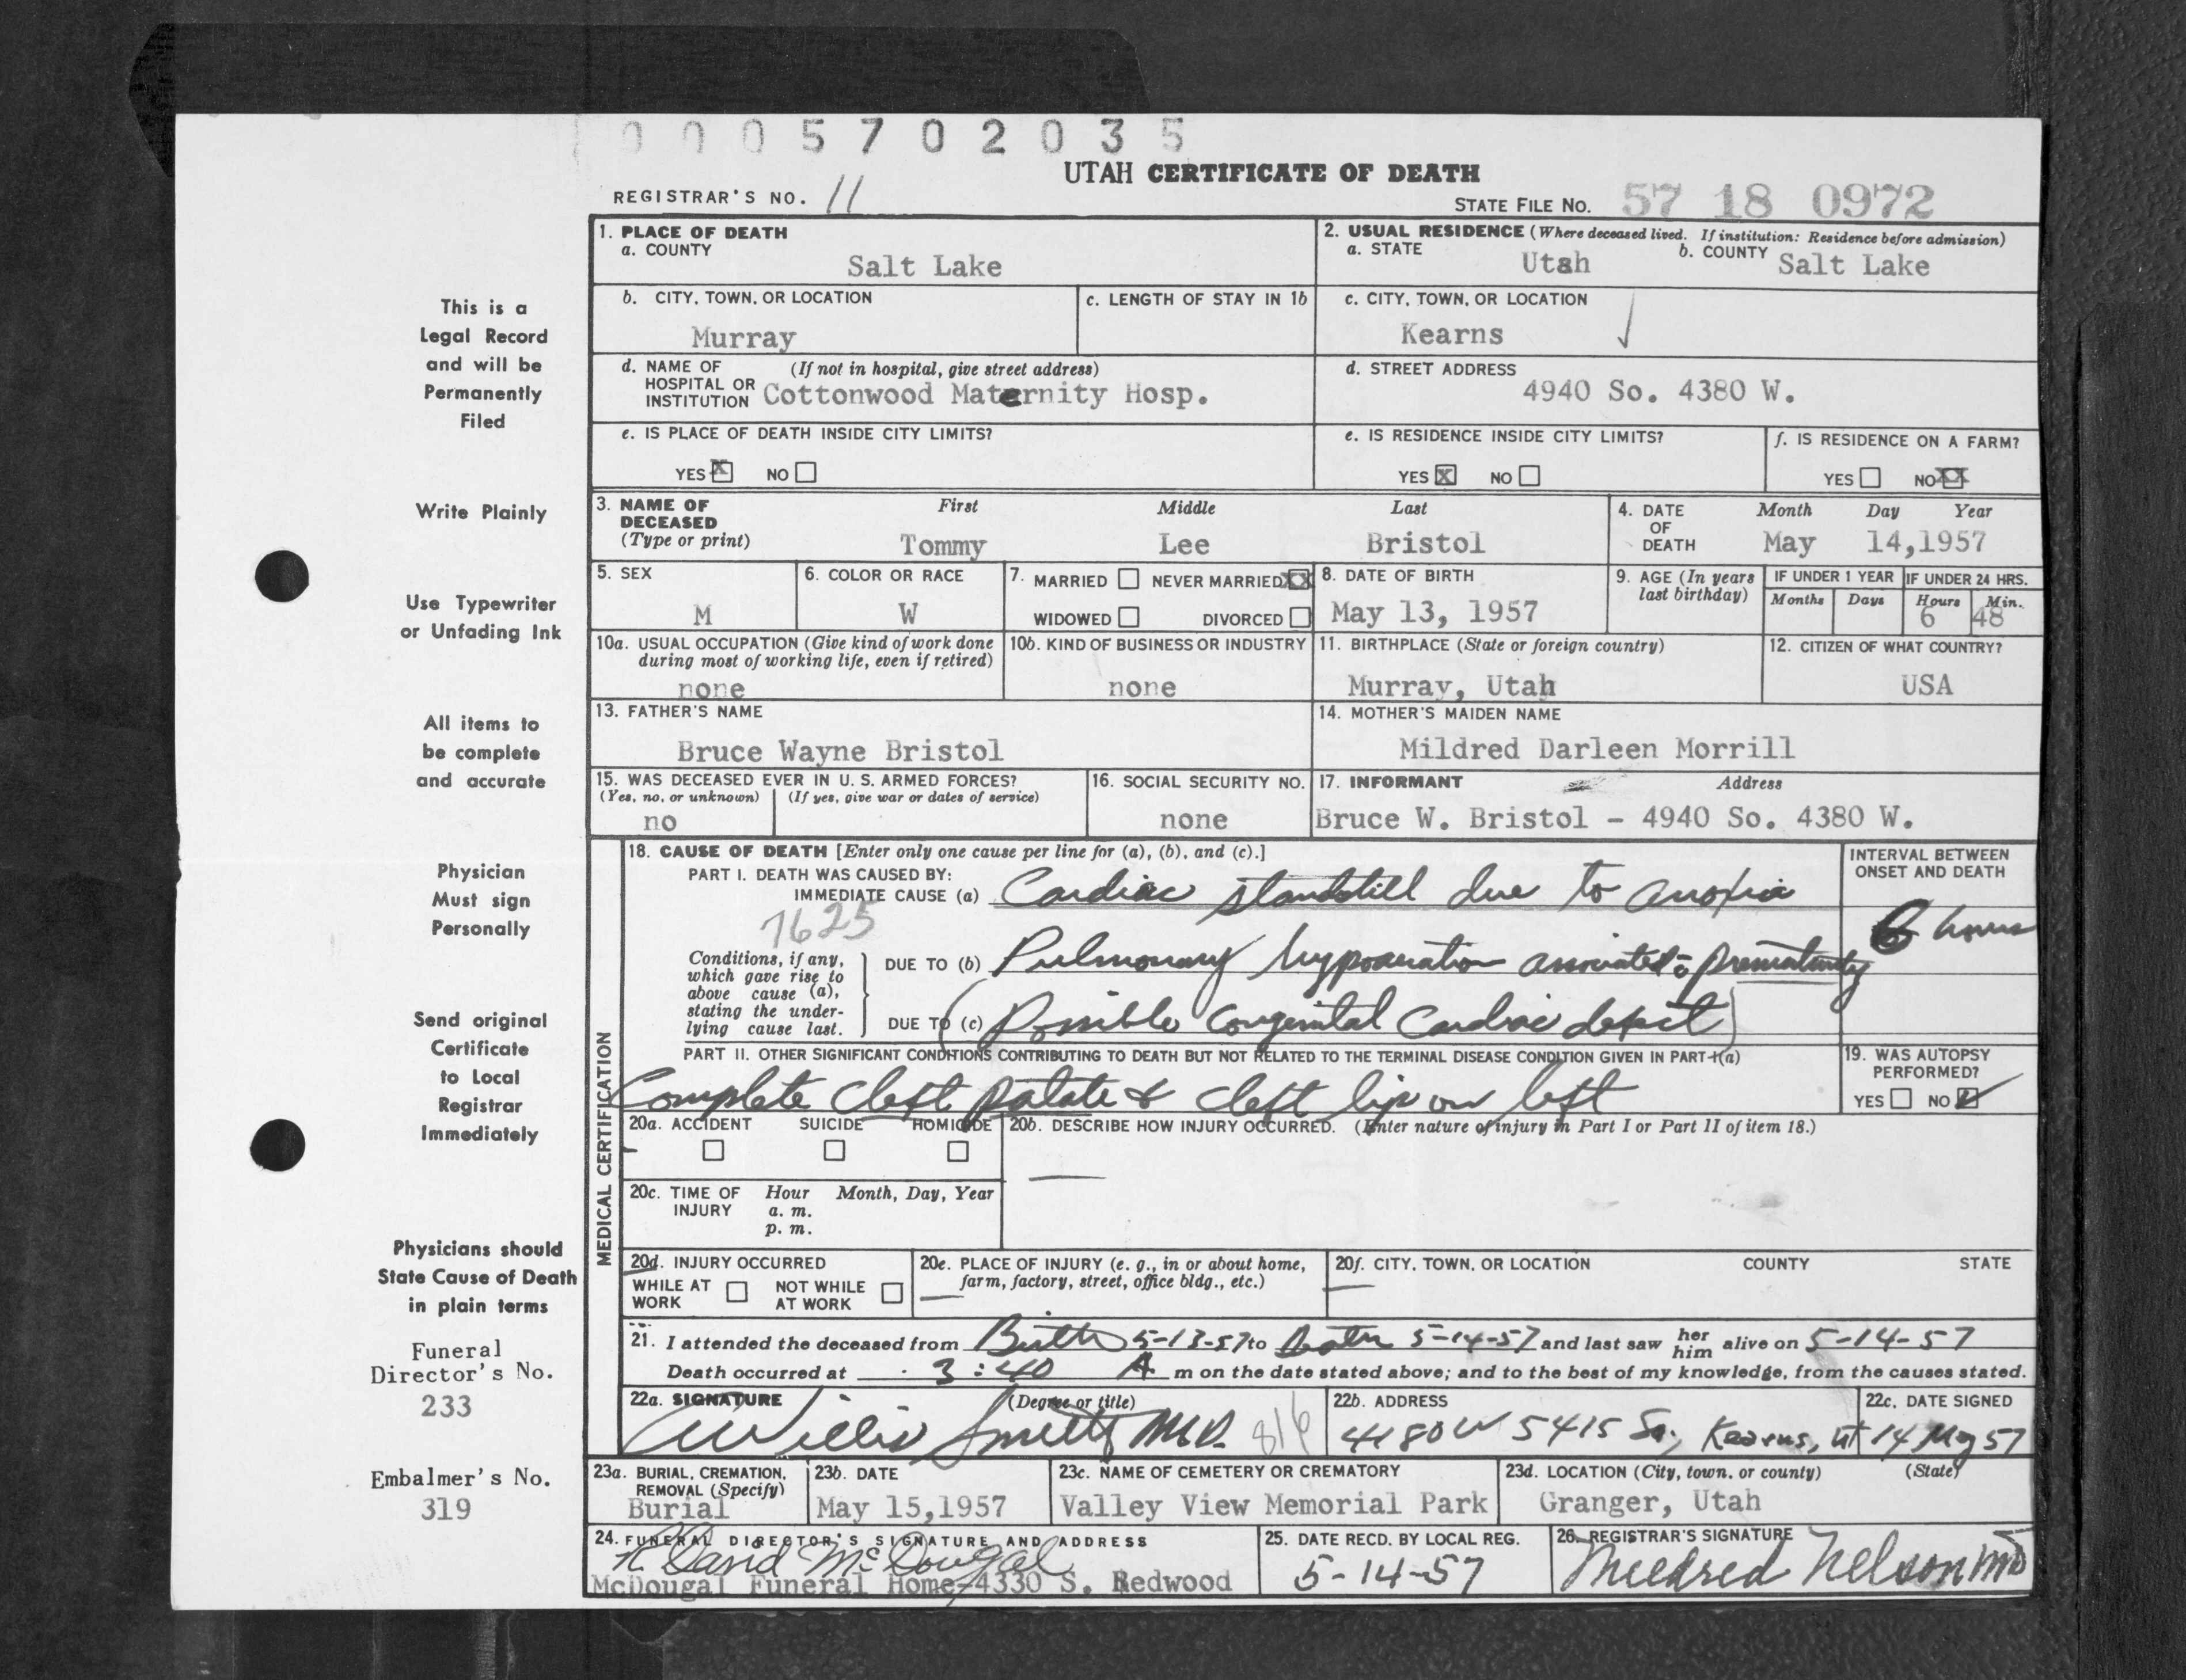 0 0 0 5 7 0 2 0 3 5
UTAH CERTIFICATE OF DEATH
REGISTRAR'S NO. 11
STATE FILE NO. 57 18 0972
1. PLACE OF DEATH
a. COUNTY
Salt Lake
2. USUAL RESIDENCE (Where deceased lived. If institution: Residence before admission)
a. STATE Utah b. COUNTY Salt Lake
b. CITY, TOWN, OR LOCATION
Murray
c. LENGTH OF STAY IN 1b
c. CITY, TOWN, OR LOCATION
Kearns
d. NAME OF (If not in hospital, give street address)
HOSPITAL OR
INSTITUTION Cottonwood Maternity Hosp.
d. STREET ADDRESS
4940 So. 4380 W.
e. IS PLACE OF DEATH INSIDE CITY LIMITS?
YES X NO
e. IS RESIDENCE INSIDE CITY LIMITS?
YES X NO
f. IS RESIDENCE ON A FARM?
YES NO XX
3. NAME OF DECEASED (Type or print)
First Middle Last
Tommy Lee Bristol
4. DATE OF DEATH
Month Day Year
May 14,1957
5. SEX
M
6. COLOR OR RACE
W
7. MARRIED NEVER MARRIED XX
WIDOWED DIVORCED
8. DATE OF BIRTH
May 13, 1957
9. AGE (In years last birthday)
IF UNDER 1 YEAR
Months Days
IF UNDER 24 HRS.
Hours Min.
6 48
10a. USUAL OCCUPATION (Give kind of work done
during most of working life, even if retired)
none
10b. KIND OF BUSINESS OR INDUSTRY
none
11. BIRTHPLACE (State or foreign country)
Murray, Utah
12. CITIZEN OF WHAT COUNTRY?
USA
13. FATHER'S NAME
Bruce Wayne Bristol
14. MOTHER'S MAIDEN NAME
Mildred Darleen Morrill
15. WAS DECEASED EVER IN U. S. ARMED FORCES?
(Yes, no, or unknown) (If yes, give war or dates of service)
no
16. SOCIAL SECURITY NO.
none
17. INFORMANT Address
Bruce W. Bristol - 4940 So. 4380 W.
MEDICAL CERTIFICATION
18. CAUSE OF DEATH [Enter only one cause per line for (a), (b), and (c).]
PART I. DEATH WAS CAUSED BY:
IMMEDIATE CAUSE (a) Cardiac standstill due to anoxia
7625
INTERVAL BETWEEN
ONSET AND DEATH
6 hours
Conditions, if any,
which gave rise to
above cause (a),
stating the under-
lying cause last.
DUE TO (b) Pulmonary hypoaeration associated c prematurity
DUE TO (c) (Possible Congenital Cardiac defect)
PART II. OTHER SIGNIFICANT CONDITIONS CONTRIBUTING TO DEATH BUT NOT RELATED TO THE TERMINAL DISEASE CONDITION GIVEN IN PART I(a)
Complete cleft palate & cleft lip on left
19. WAS AUTOPSY
PERFORMED?
YES NO ✓
20a. ACCIDENT SUICIDE HOMICIDE
20b. DESCRIBE HOW INJURY OCCURRED. (Enter nature of injury in Part I or Part II of item 18.)
20c. TIME OF INJURY Hour Month, Day, Year
a. m.
p. m.
20d. INJURY OCCURRED
WHILE AT WORK NOT WHILE AT WORK
20e. PLACE OF INJURY (e. g., in or about home,
farm, factory, street, office bldg., etc.)
20f. CITY, TOWN, OR LOCATION COUNTY STATE
21. I attended the deceased from Birth 5-13-57 to Death 5-14-57 and last saw her him alive on 5-14-57
Death occurred at 3:40 A m on the date stated above; and to the best of my knowledge, from the causes stated.
22a. SIGNATURE (Degree or title)
Willis Smith MD. 816
22b. ADDRESS
4180 W 5415 So., Kearns, Ut
22c. DATE SIGNED
14 May 57
23a. BURIAL, CREMATION,
REMOVAL (Specify)
Burial
23b. DATE
May 15,1957
23c. NAME OF CEMETERY OR CREMATORY
Valley View Memorial Park
23d. LOCATION (City, town, or county) (State)
Granger, Utah
24. FUNERAL DIRECTOR'S SIGNATURE AND ADDRESS
R David McDougal
McDougal Funeral Home-4330 S. Redwood
25. DATE RECD. BY LOCAL REG.
5-14-57
26. REGISTRAR'S SIGNATURE
Mildred Nelson MD
This is a
Legal Record
and will be
Permanently
Filed
Write Plainly
Use Typewriter
or Unfading Ink
All items to
be complete
and accurate
Physician
Must sign
Personally
Send original
Certificate
to Local
Registrar
Immediately
Physicians should
State Cause of Death
in plain terms
Funeral
Director's No.
233
Embalmer's No.
319